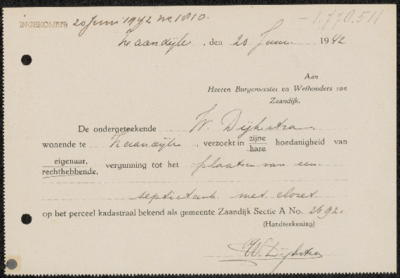 INGEKOMEN 20 Juni 1942 No. 1010.
-1.770.511
Zaandijk, den 20 Juni 1942
Aan
Heeren Burgemeester en Wethouders van
Zaandijk.
De ondergeteekende W. Dijkstra
wonende te Zaandijk, verzoekt in zijne hoedanigheid van
hare
eigenaar, vergunning tot het plaatsen van een
rechthebbende,
septictank met closet
op het perceel kadastraal bekend als gemeente Zaandijk Sectie A No. 2692.
(Handteekening)
W. Dijkstra